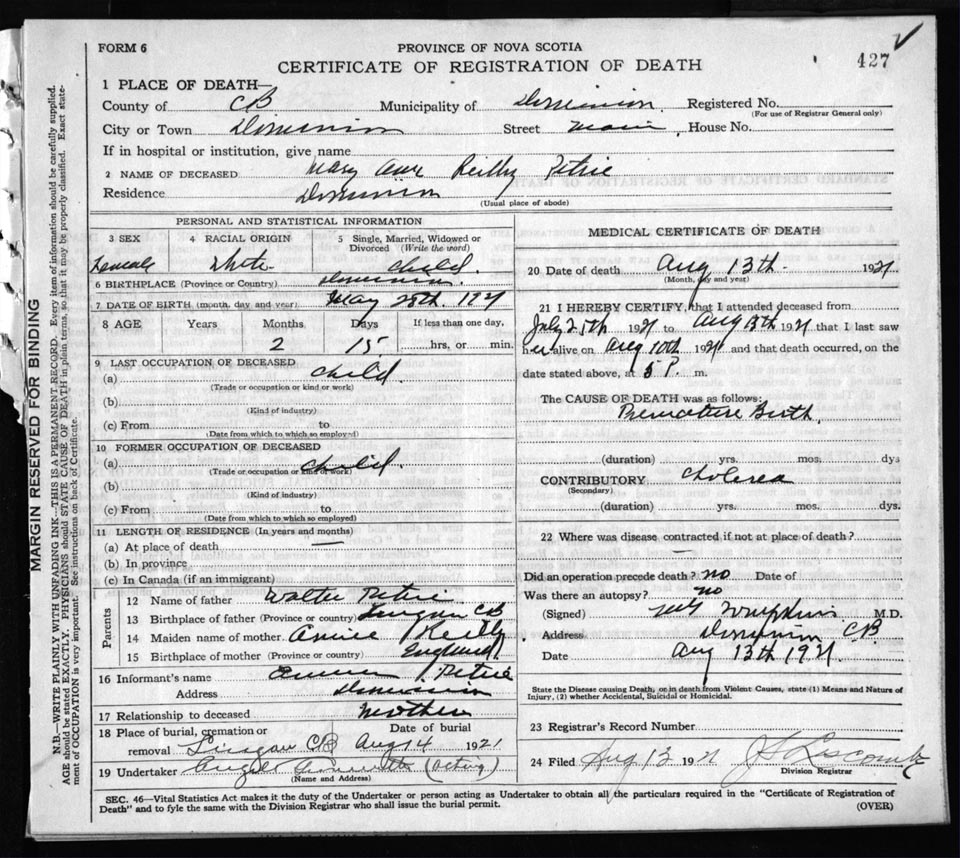 FORM 6
PROVINCE OF NOVA SCOTIA
CERTIFICATE OF REGISTRATION OF DEATH
427
1 PLACE OF DEATH—
County of CB Municipality of Dominion Registered No.
(For use of Registrar General only)
City or Town Dominion Street Main, House No.
If in hospital or institution, give name
2 NAME OF DECEASED Mary Ann Reilly Petrie
Residence Dominion
(Usual place of abode)
PERSONAL AND STATISTICAL INFORMATION
3 SEX 4 RACIAL ORIGIN 5 Single, Married, Widowed or Divorced (Write the word)
Female White Child.
6 BIRTHPLACE (Province or Country) Dominion.
7 DATE OF BIRTH (month, day and year) May 28th. 1921
8 AGE Years Months Days If less than one day,
2 15 hrs, or min.
9 LAST OCCUPATION OF DECEASED
(a) child.
(Trade or occupation or kind or work)
(b)
(Kind of industry)
(c) From to
(Date from which to which so employed)
10 FORMER OCCUPATION OF DECEASED
(a) child.
(Trade or occupation or kind of work)
(b)
(Kind of industry)
(c) From to
(Date from which to which so employed)
11 LENGTH OF RESIDENCE (In years and months)
(a) At place of death —
(b) In province
(c) In Canada (if an immigrant)
Parents
12 Name of father Walter Petrie
13 Birthplace of father (Province or country) Lingan CB
14 Maiden name of mother Annie Reilly
15 Birthplace of mother (Province or country) England
16 Informant's name Petrie
Address Dominion
17 Relationship to deceased Mother
18 Place of burial, cremation or removal Date of burial
Lingan CB Aug 14 1921
19 Undertaker (Acting)
(Name and Address)
MEDICAL CERTIFICATE OF DEATH
20 Date of death Aug 13th. 1921
(Month, day and year)
21 I HEREBY CERTIFY, that I attended deceased from
July 25th 1921 to Aug 13th 1921 that I last saw
her alive on Aug 10th 1921 and that death occurred, on the
date stated above, at 5 P. m.
The CAUSE OF DEATH was as follows:
Premature Birth,
(duration) yrs. mos. dys
CONTRIBUTORY cholerea
(Secondary)
(duration) yrs. mos. dys.
22 Where was disease contracted if not at place of death?
—
Did an operation precede death? no Date of
Was there an autopsy? no
(Signed) M.D.
Address Dominion CB
Date Aug 13th 1921.
State the Disease causing Death, or in death from Violent Causes, state (1) Means and Nature of Injury, (2) whether Accidental, Suicidal or Homicidal.
23 Registrar's Record Number
24 Filed Aug 13 1921
Division Registrar
SEC. 46—Vital Statistics Act makes it the duty of the Undertaker or person acting as Undertaker to obtain all the particulars required in the "Certificate of Registration of
Death" and to fyle the same with the Division Registrar who shall issue the burial permit.
(OVER)
MARGIN RESERVED FOR BINDING
N.B.—WRITE PLAINLY WITH UNFADING INK—THIS IS A PERMANENT RECORD. Every item of information should be carefully supplied.
AGE should be stated EXACTLY. PHYSICIANS should STATE CAUSE OF DEATH in plain terms, so that it may be properly classified. Exact statement of OCCUPATION is very important. See instructions on back of Certificate.